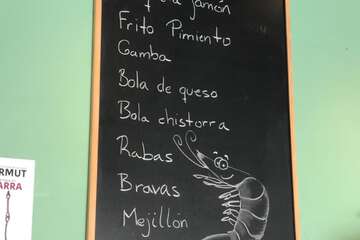 jamón
Frito Pimiento
Gamba
Bola de queso
Bola chistorra
Rabas
Bravas
Mejillón
RMUT
ARRA